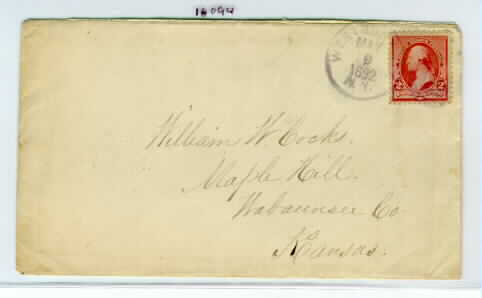 18094
MAY
9
1892
N.Y.
2 2
William W Cocks.
Maple Hill.
Wabaunsee Co
Kansas.